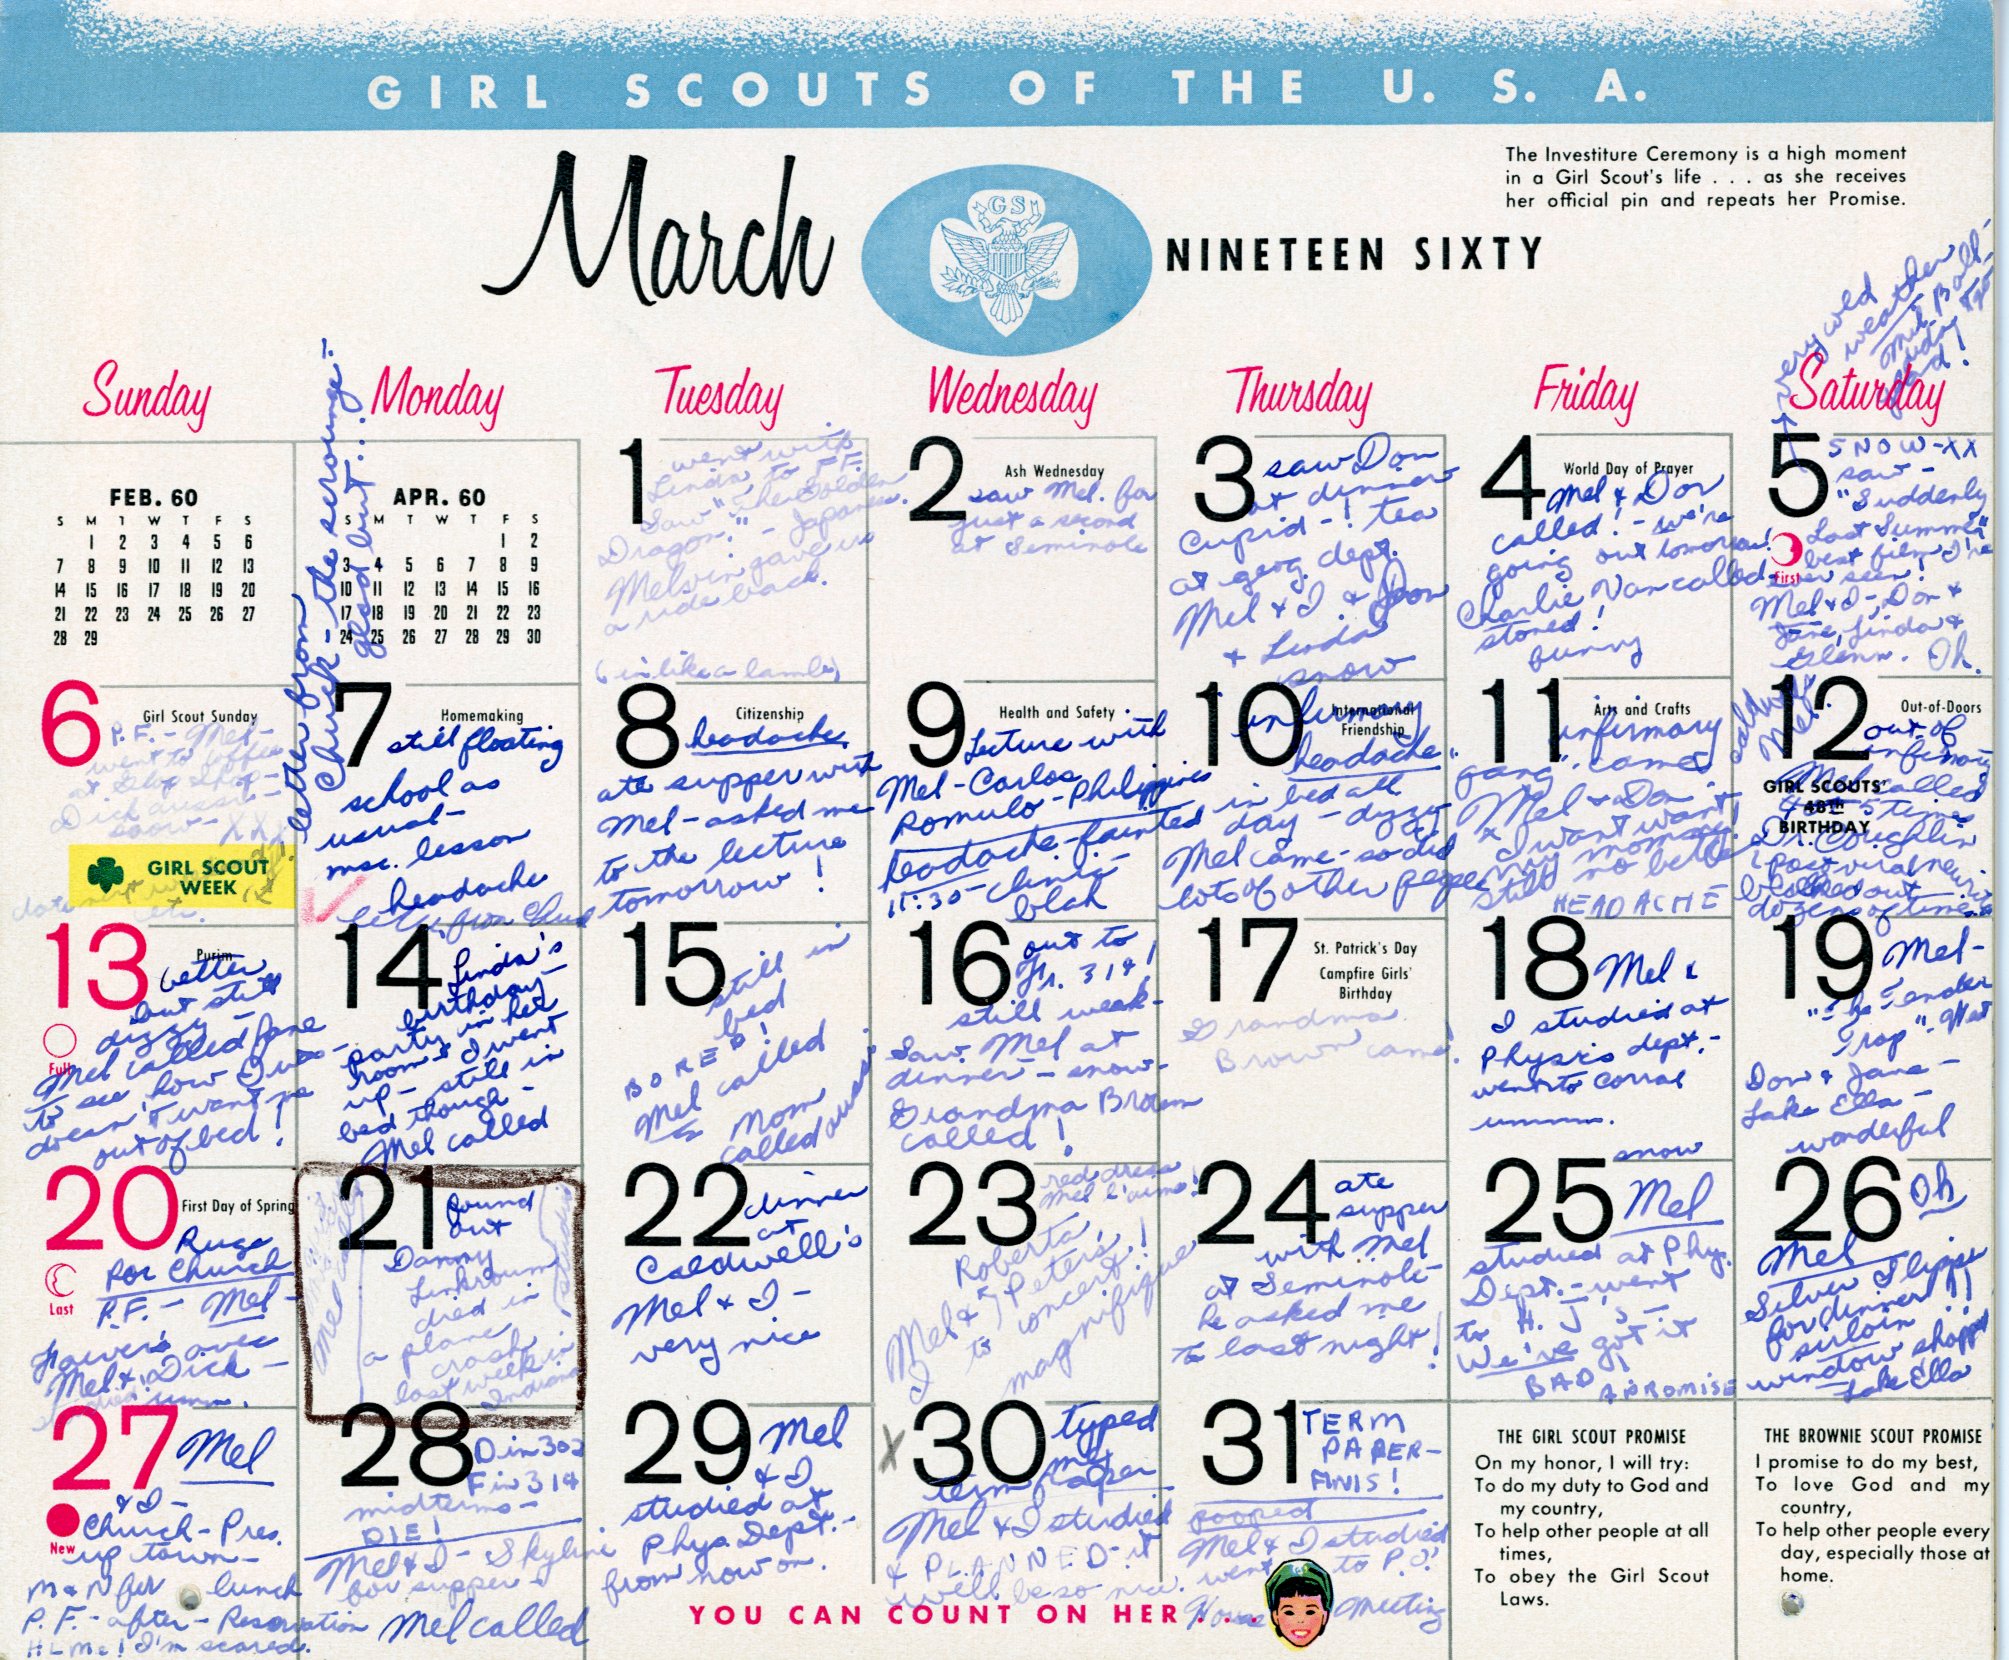 GIRL SCOUTS OF THE U. S. A.
The Investiture Ceremony is a high moment
in a Girl Scout's life . . . as she receives
her official pin and repeats her Promise.
March
NINETEEN SIXTY
GSM
very cold
weather
Sunday
Monday
Tuesday
Wednesday
Thursday
Friday
Saturday
FEB. 60
S M T W T F S
1 2 3 4 5 6
7 8 9 10 11 12 13
14 15 16 17 18 19 20
21 22 23 24 25 26 27
28 29
letter from
Chuck - the scrounge -
glad but...
APR. 60
S M T W T F S
1 2
3 4 5 6 7 8 9
10 11 12 13 14 15 16
17 18 19 20 21 22 23
24 25 26 27 28 29 30
1
went with
Linda to F.F.
Saw "The Golden
Dragon." - Japanese.
Melvin gave us
a ride back.
(in like a lamb)
2
Ash Wednesday
saw Mel. for
just a second
at Seminole
3
saw Don
at dinner
Cupid - ! tea
at geog. dept.
Mel & I & Don
& Linda
snow
4
World Day of Prayer
Mel & Don
called! - we're
going out tomorrow!
Charlie Van called
stoned!
funny
5
SNOW-XX
saw -
"Suddenly
Last Summer"
best film I've
ever seen!
First
Mel & I - Don &
Jane, Linda &
Glenn. Oh.
6
Girl Scout Sunday
P.F. - Mel -
went to coffee
at
Dick
snow - XXX
GIRL SCOUT
WEEK
7
Homemaking
still floating
school as
usual -
msc. lesson
headache
letter from Chuck
8
Citizenship
headache
ate supper with
Mel - asked me
to the lecture
tomorrow!
9
Health and Safety
Lecture with
Mel - Carlos
Romulo - Philippines
headache - fainted
11:30 - clinic -
blah
10
International
Friendship
infirmary
headache
in bed all
day - dizzy
Mel came - so did
lots of other people
11
Arts and Crafts
infirmary
"gang" came
Mel & Don
& I want want
my mommy
still no better
HEADACHE
12
Out-of-Doors
out of
infirmary
GIRL SCOUTS'
48TH
BIRTHDAY
Mel called
4 or 5 times
Dr. Coughlin
post viral neuritis
dozens of times
13
Purim
better
but still
dizzy -
Full
Mel called Jane
to see how I was -
doesn't want me
out of bed!
14
Linda's
birthday -
party in her
room & I went
up - still in
bed though -
Mel called
15
still in
bed
BORED!
Mel called
Mom
called
16
out to
Fr. 314!
still weak -
Saw Mel at
dinner - snow -
Grandma Brown
called!
17
St. Patrick's Day
Campfire Girls'
Birthday
Grandma
Brown came!
18
Mel &
I studied at
Physics dept. -
went to Corral
ummmm.
snow
19
Mel -
"The Tender
Trap" - West
Don & Jane -
Lake Ella -
wonderful
20
First Day of Spring
Ruge
for Church
Last
P.F. - Mel -
avec
Mel & Dick -
umm.
21
found
out
Danny
Linkroum
died in
a plane
crash
last week in
Indiana
22
dinner
at
Caldwell's
Mel & I -
very nice
23
red dress
Mel l'aime!
Roberta
Peters!
Mel &
I to concert!
magnifique
24
ate
supper
with Mel
at Seminole -
he asked me
to last night!
25
Mel
studied at Phy.
Dept. - went
to H. J.'s -
We've got it
BAD!
A PROMISE
26
Oh
Mel
Silver Slipper
for dinner!!
sirloin
window shopping
Lake Ella
27
Mel
& I -
New
Church - Pres.
up town -
M & N for lunch
P. F. - after - Reservation
H L Me! I'm scared.
28
D in 302
F in 314
midterms -
DIE!
Mel & I - Skyline
for supper -
Mel called
29
Mel
& I
studied at
Phys. Dept. -
from now on.
30
typed
term paper
Mel & I studied
& PLANNED - it
will be so nice.
31
TERM
PAPER -
FINIS!
pooped
Mel & I studied
went to P.O.!
House Meeting
THE GIRL SCOUT PROMISE
On my honor, I will try:
To do my duty to God and
my country,
To help other people at all
times,
To obey the Girl Scout
Laws.
THE BROWNIE SCOUT PROMISE
I promise to do my best,
To love God and my
country,
To help other people every
day, especially those at
home.
YOU CAN COUNT ON HER . . .